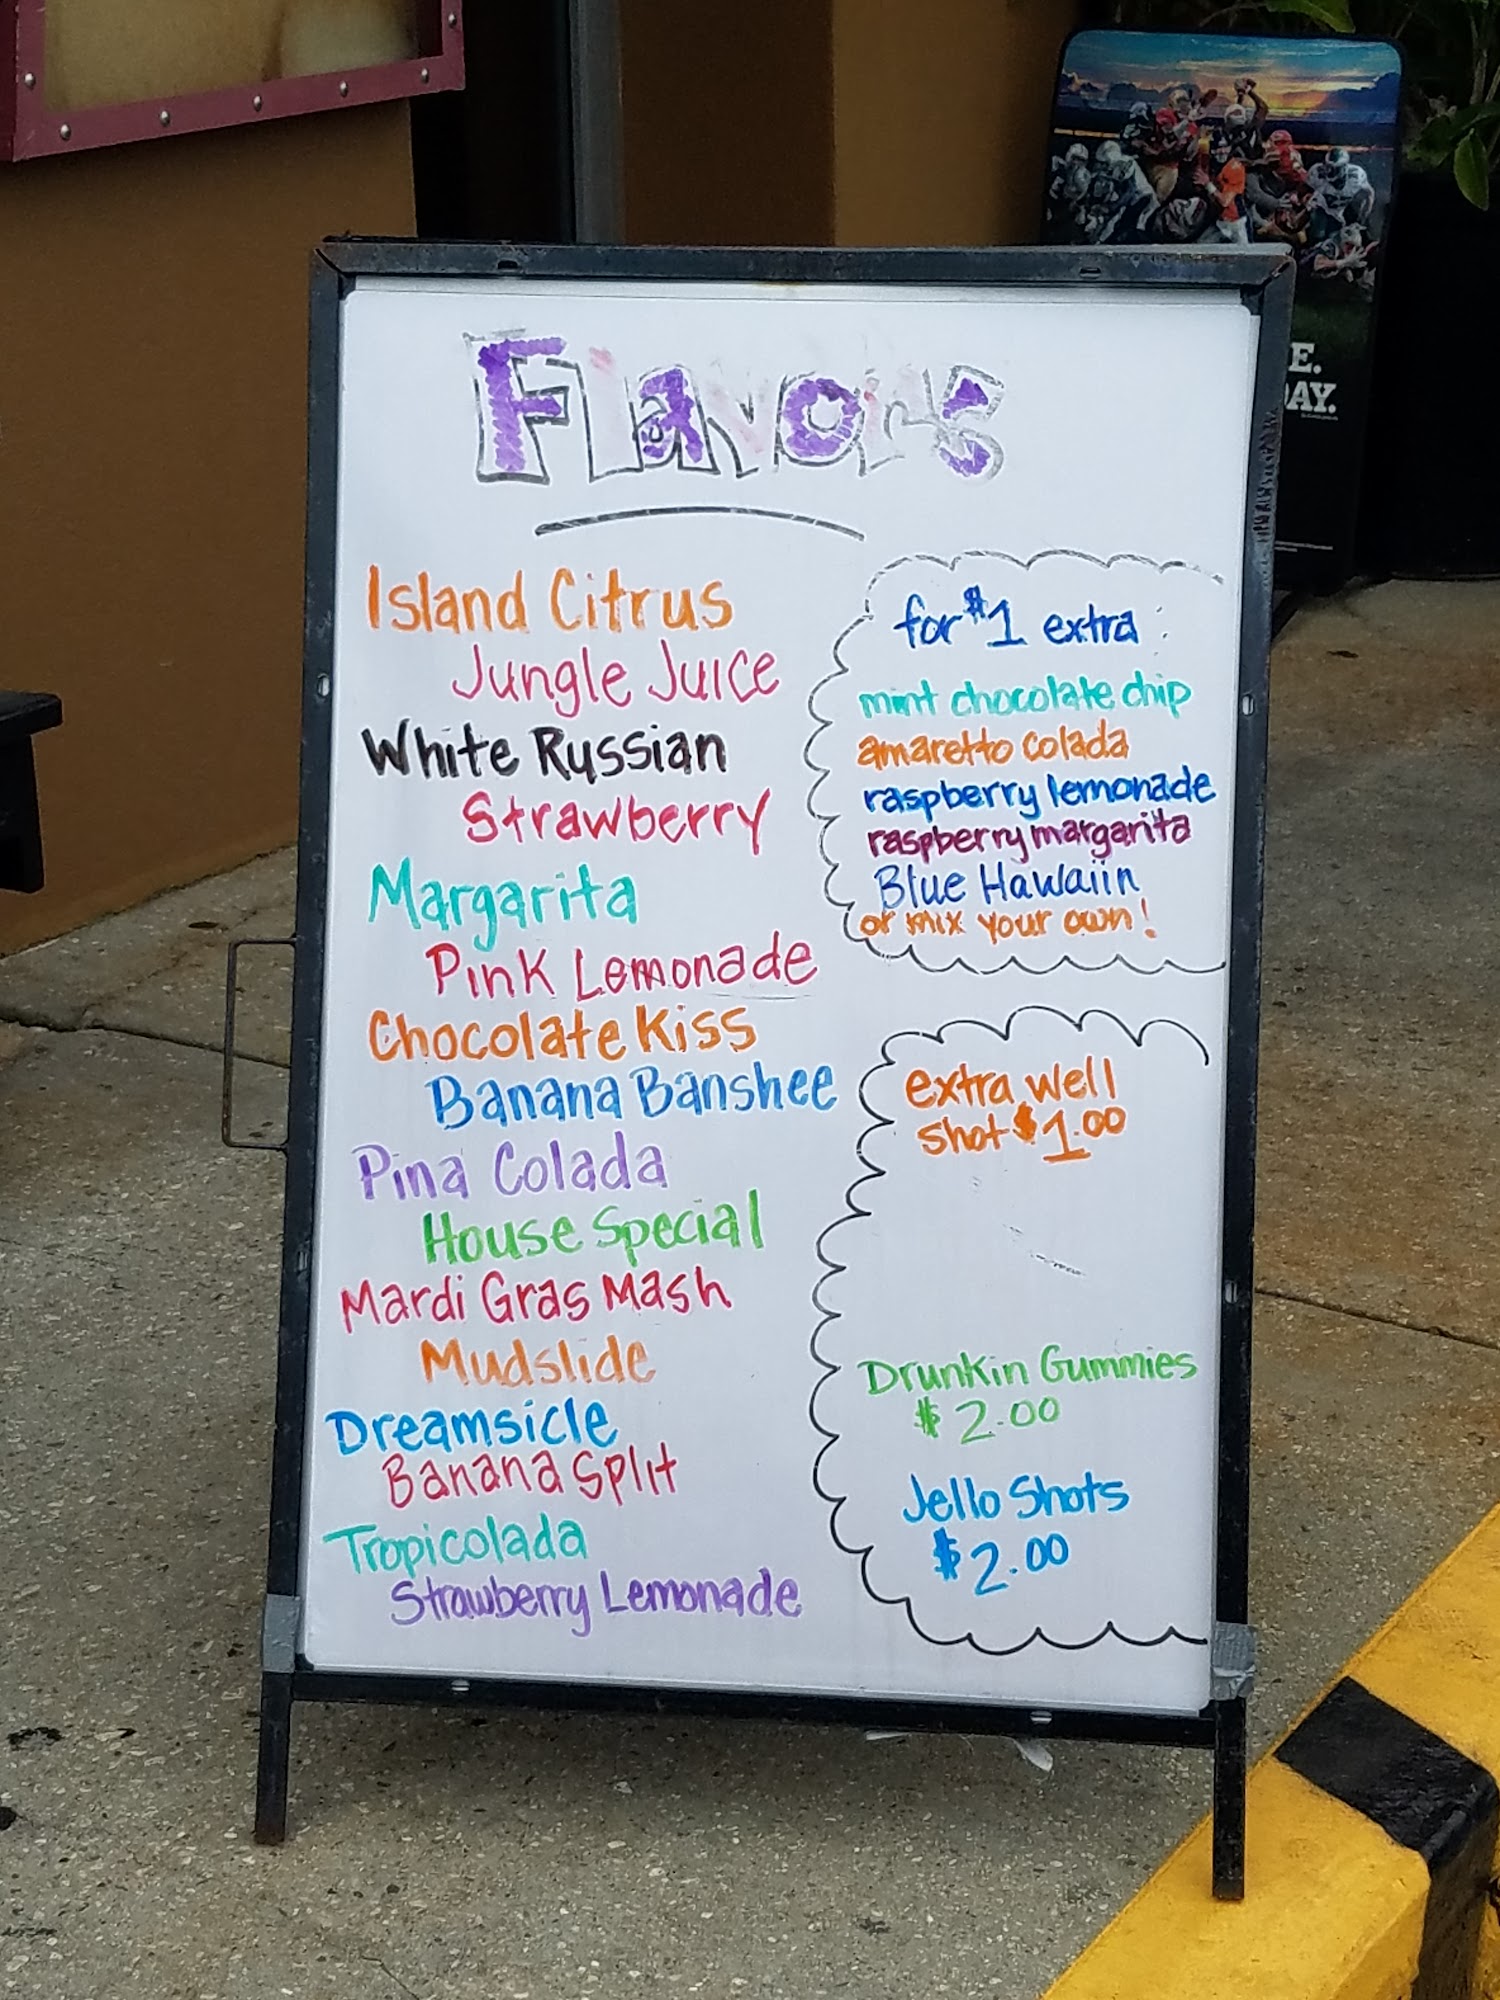 Flavors
Island Citrus
Jungle Juice
White Russian
Strawberry
Margarita
Pink Lemonade
Chocolate Kiss
Banana Banshee
Pina Colada
House Special
Mardi Gras Mash
Mudslide
Dreamsicle
Banana Split
Tropicolada
Strawberry Lemonade
for $1 extra:
mint chocolate chip
amaretto colada
raspberry lemonade
raspberry margarita
Blue Hawaiin
or mix your own!
extra well
shot $1.00
Drunkin Gummies
$2.00
Jello Shots
$2.00
E.
AY.